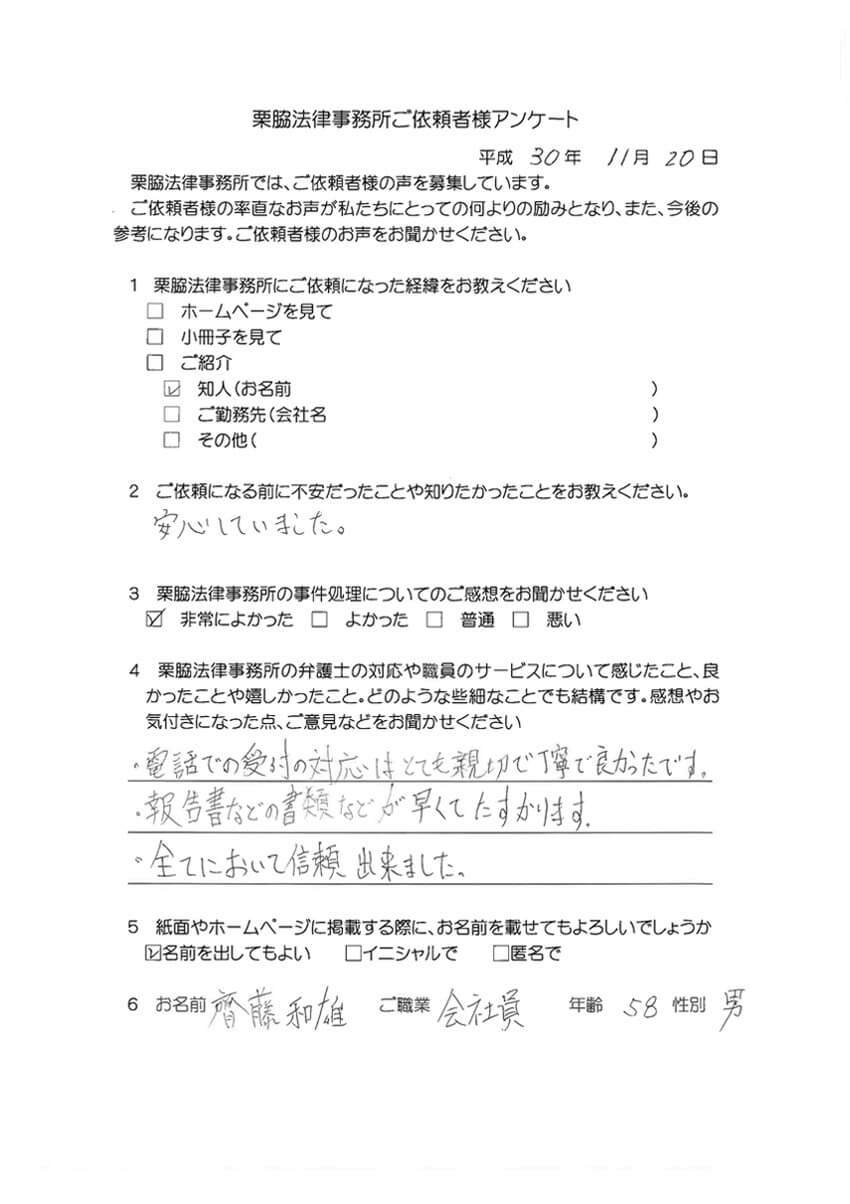 栗脇法律事務所ご依頼者様アンケート
平成 30年 11月 20日
栗脇法律事務所では、ご依頼者様の声を募集しています。
ご依頼者様の率直なお声が私たちにとっての何よりの励みとなり、また、今後の
参考になります。ご依頼者様のお声をお聞かせください。
1 栗脇法律事務所にご依頼になった経緯をお教えください
□ ホームページを見て
□ 小冊子を見て
□ ご紹介
☑ 知人(お名前 )
□ ご勤務先(会社名 )
□ その他( )
2 ご依頼になる前に不安だったことや知りたかったことをお教えください。
安心していました。
3 栗脇法律事務所の事件処理についてのご感想をお聞かせください
☑ 非常によかった □ よかった □ 普通 □ 悪い
4 栗脇法律事務所の弁護士の対応や職員のサービスについて感じたこと、良
かったことや嬉しかったこと。どのような些細なことでも結構です。感想やお
気付きになった点、ご意見などをお聞かせください
・電話での受付の対応はとても親切で丁寧で良かったです。
・報告書などの書類などが早くてたすかります。
・全てにおいて信頼出来ました。
5 紙面やホームページに掲載する際に、お名前を載せてもよろしいでしょうか
☑名前を出してもよい □イニシャルで □匿名で
6 お名前 齊藤和雄 ご職業 会社員 年齢 58 性別 男